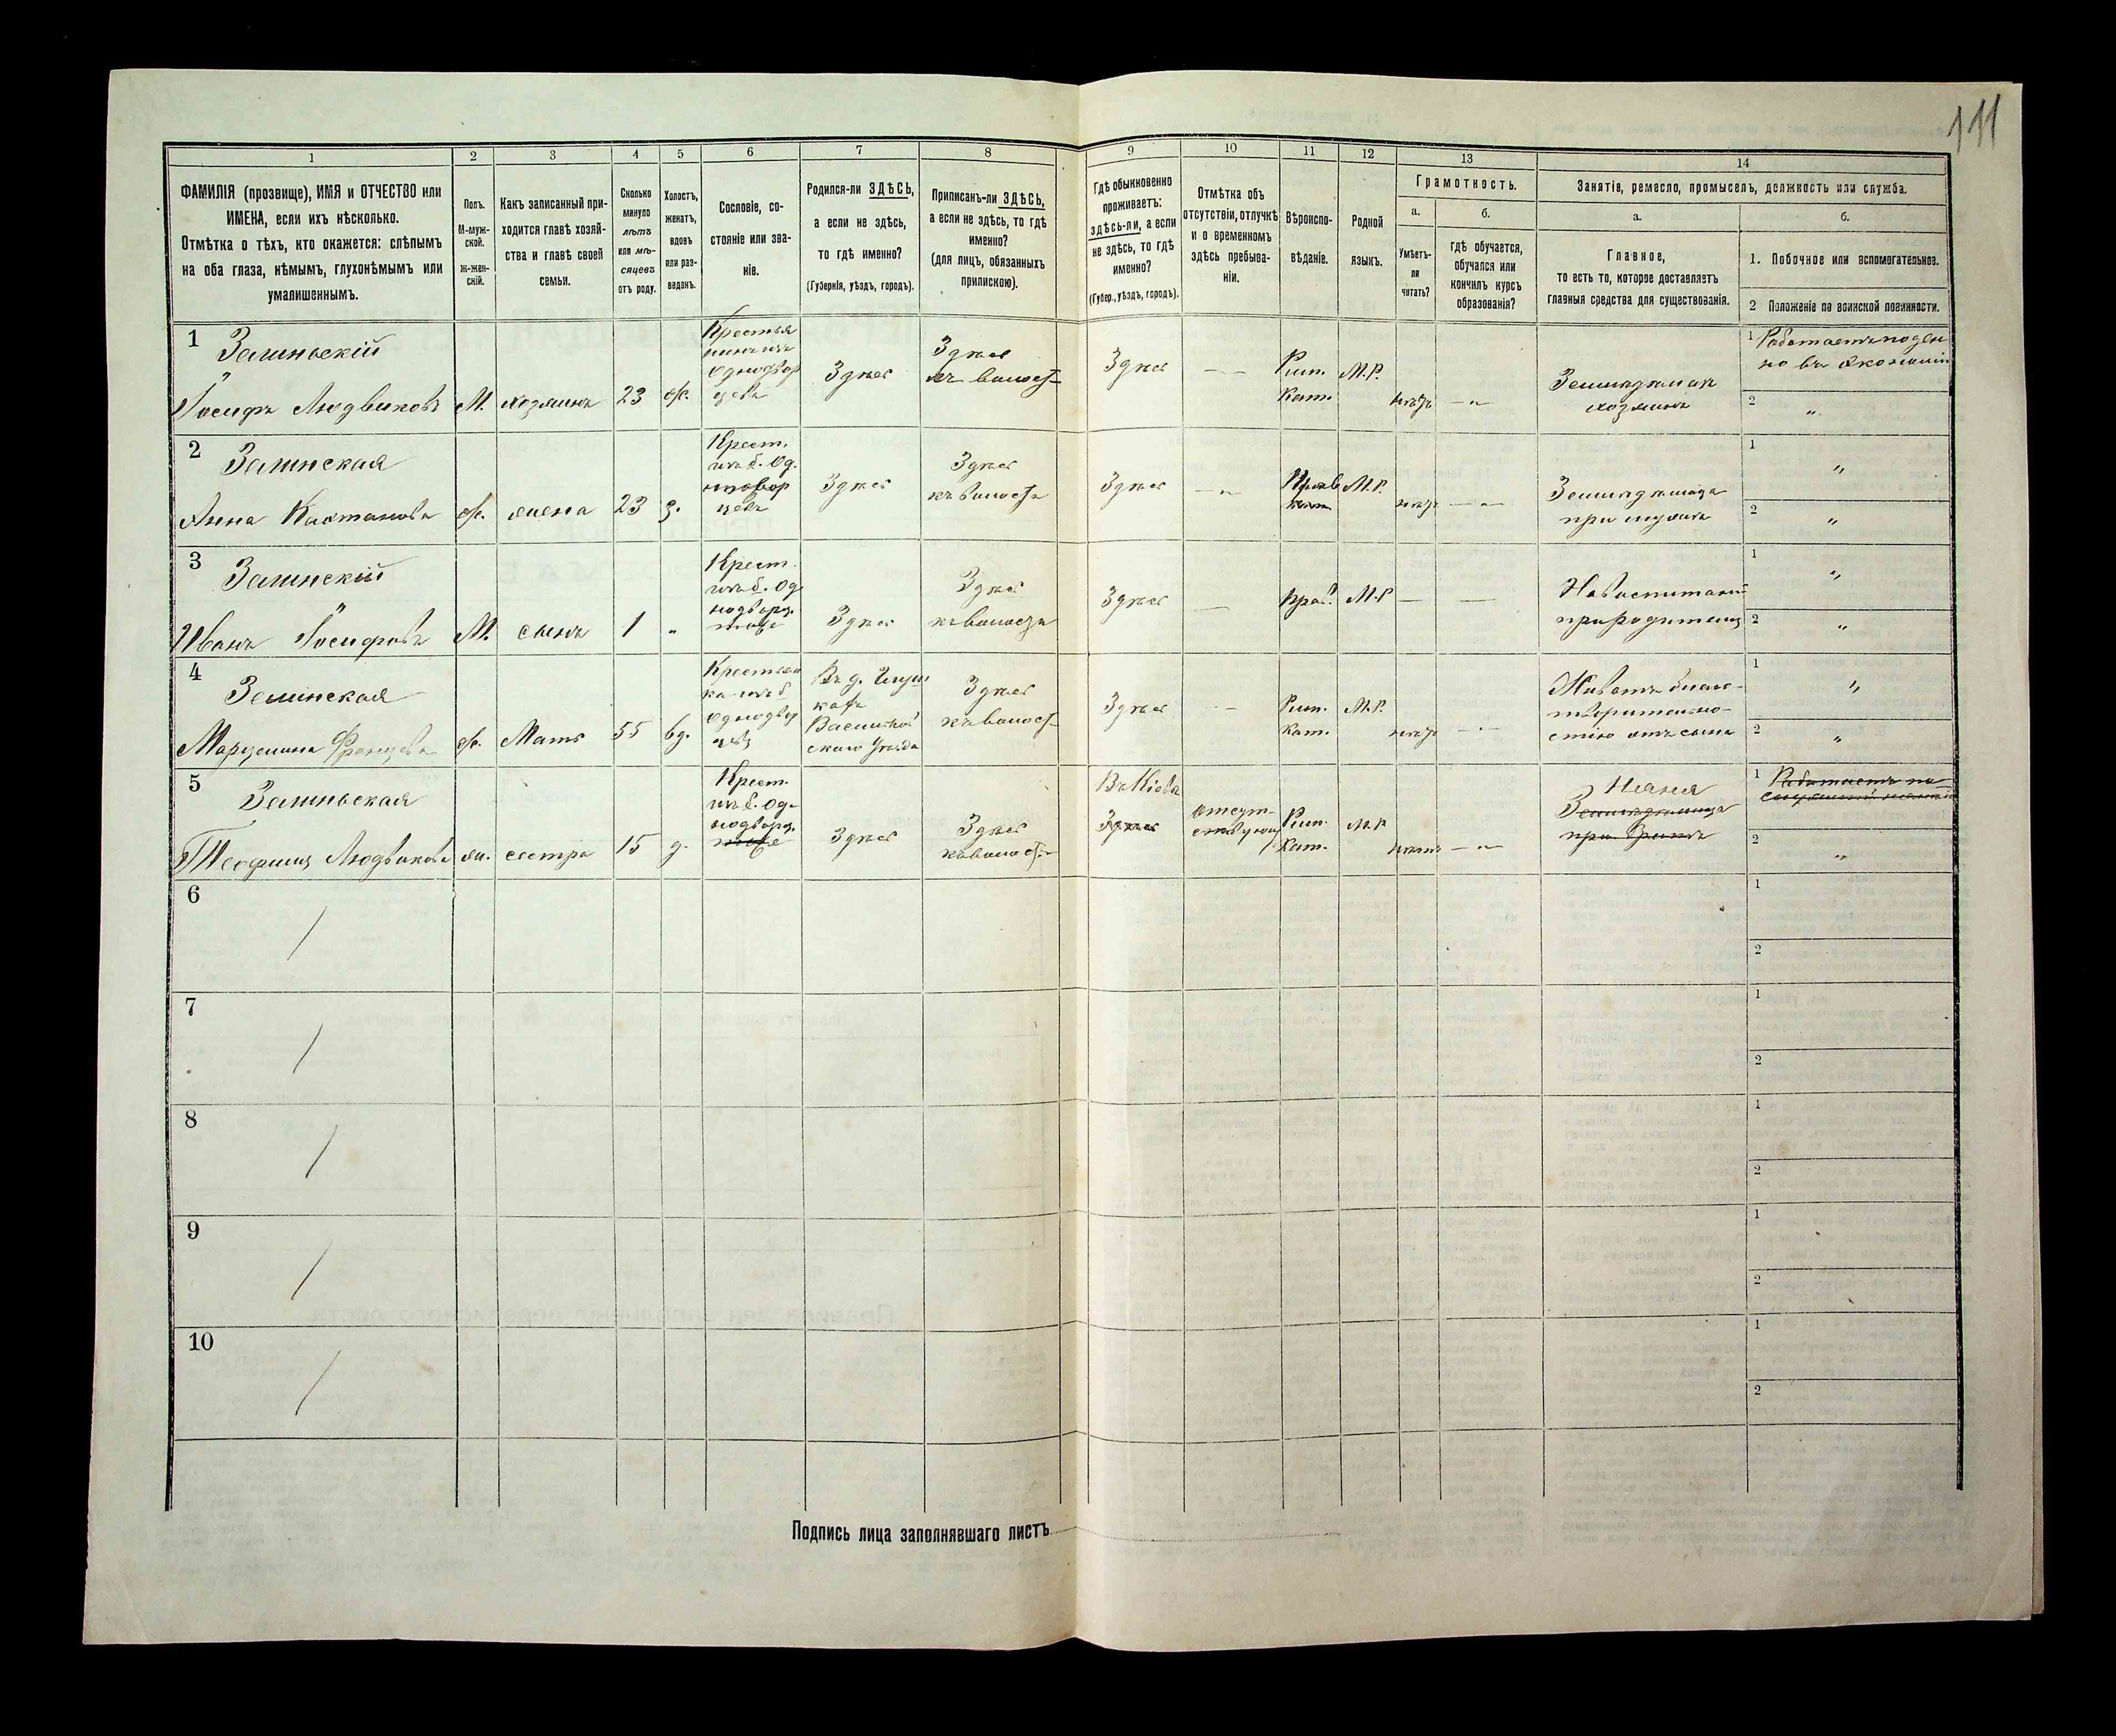 111
1
2
3
4
5
6
7
8
9
10
11
12
13
14
ФАМИЛІЯ (прозвище), ИМЯ и ОТЧЕСТВО или
ИМЕНА, если ихъ нѣсколько.
Отмѣтка о тѣхъ, кто окажется: слѣпымъ
на оба глаза, нѣмымъ, глухонѣмымъ или
умалишеннымъ.
Полъ.
М-муж-
ской.
Ж-жен-
скій.
Какъ записанный при-
ходится главѣ хозяй-
ства и главѣ своей
семьи.
Сколько
минуло
лѣтъ
или мѣ-
сяцевъ
отъ роду.
Холостъ,
женатъ,
вдовъ
или раз-
веденъ.
Сословіе, со-
стояніе или зва-
ніе.
Родился-ли ЗДѢСЬ,
а если не здѣсь,
то гдѣ именно?
(Губернія, уѣздъ, городъ).
Приписанъ-ли ЗДѢСЬ,
а если не здѣсь, то гдѣ
именно?
(для лицъ, обязанныхъ
припискою).
Гдѣ обыкновенно
проживаетъ:
здѣсь-ли, а если
не здѣсь, то гдѣ
именно?
(Губер., уѣздъ, городъ).
Отмѣтка объ
отсутствіи, отлучкѣ
и о временномъ
здѣсь пребыва-
ніи.
Вѣроиспо-
вѣданіе.
Родной
языкъ.
Грамотность.
а.
б.
Умѣетъ-
ли
читать?
гдѣ обучается,
обучался или
кончилъ курсъ
образованія?
Занятіе, ремесло, промыселъ, должность или служба.
а.
б.
Главное,
то есть то, которое доставляетъ
главныя средства для существованія.
1. Побочное или вспомогательное.
2 Положеніе по воинской повинности.
1
Зелиньскій
Іосифъ Людвиковъ
М.
хозяинъ
23
ж.
Крестья
нинъ изъ
Однодвор
цевъ
Здѣсь
Здѣсь
къ волост
Здѣсь
Рим.
Кат.
М.Р.
нѣтъ
Земледѣлецъ
хозяинъ
1
но въ экономіи
2
"
2
Зелинская
Анна
ж.
жена
23
з.
Крест.
изъ б. Од.
нодвор
цевъ
Здѣсь
Здѣсь
къ волости
Здѣсь
М.Р.
нѣтъ
Земледѣлица
при мужѣ
1
"
2
"
3
Зелинскій
Иванъ Іосифовъ
М.
сынъ
1
"
Крест.
изъ б. Од
нодворц.
Здѣсь
Здѣсь
къ волости
Здѣсь
Прав.
М.Р
На воспитаніи
при родителяхъ
1
"
2
"
4
Зелинская
Марцелина Францова
ж.
Мать
55
вд.
Крестьян
ка изъ б
Однодвор
цевъ
Въ д.
Васильков
скаго Уѣзда
Здѣсь
къ волост
Здѣсь
Рим.
Кат.
М.Р.
нѣтъ
1
"
2
"
5
Зелиньская
Теофилія Людвикова
ж.
сестра
15
д.
Крест.
изъ б. Од-
нодворц.
Здѣсь
Здѣсь
къ волост
Въ Кіевѣ
Здѣсь
отсут-
ствующ
Рим.
Кат.
М.Р
нѣтъ
Няня
Земледѣлица
при братѣ
1
2
"
6
1
2
7
1
2
8
1
2
9
1
2
10
1
2
Подпись лица заполнявшаго листъ